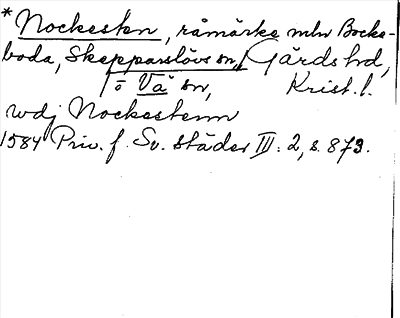 * Nockesten, råmärke mln Bocke-
boda, Skepparslövs sn, Gärds hd,
o Vä sn, Krist. l.
wdj Nockestenn
1584 Priv. f. Sv. städer III: 2, s. 873.